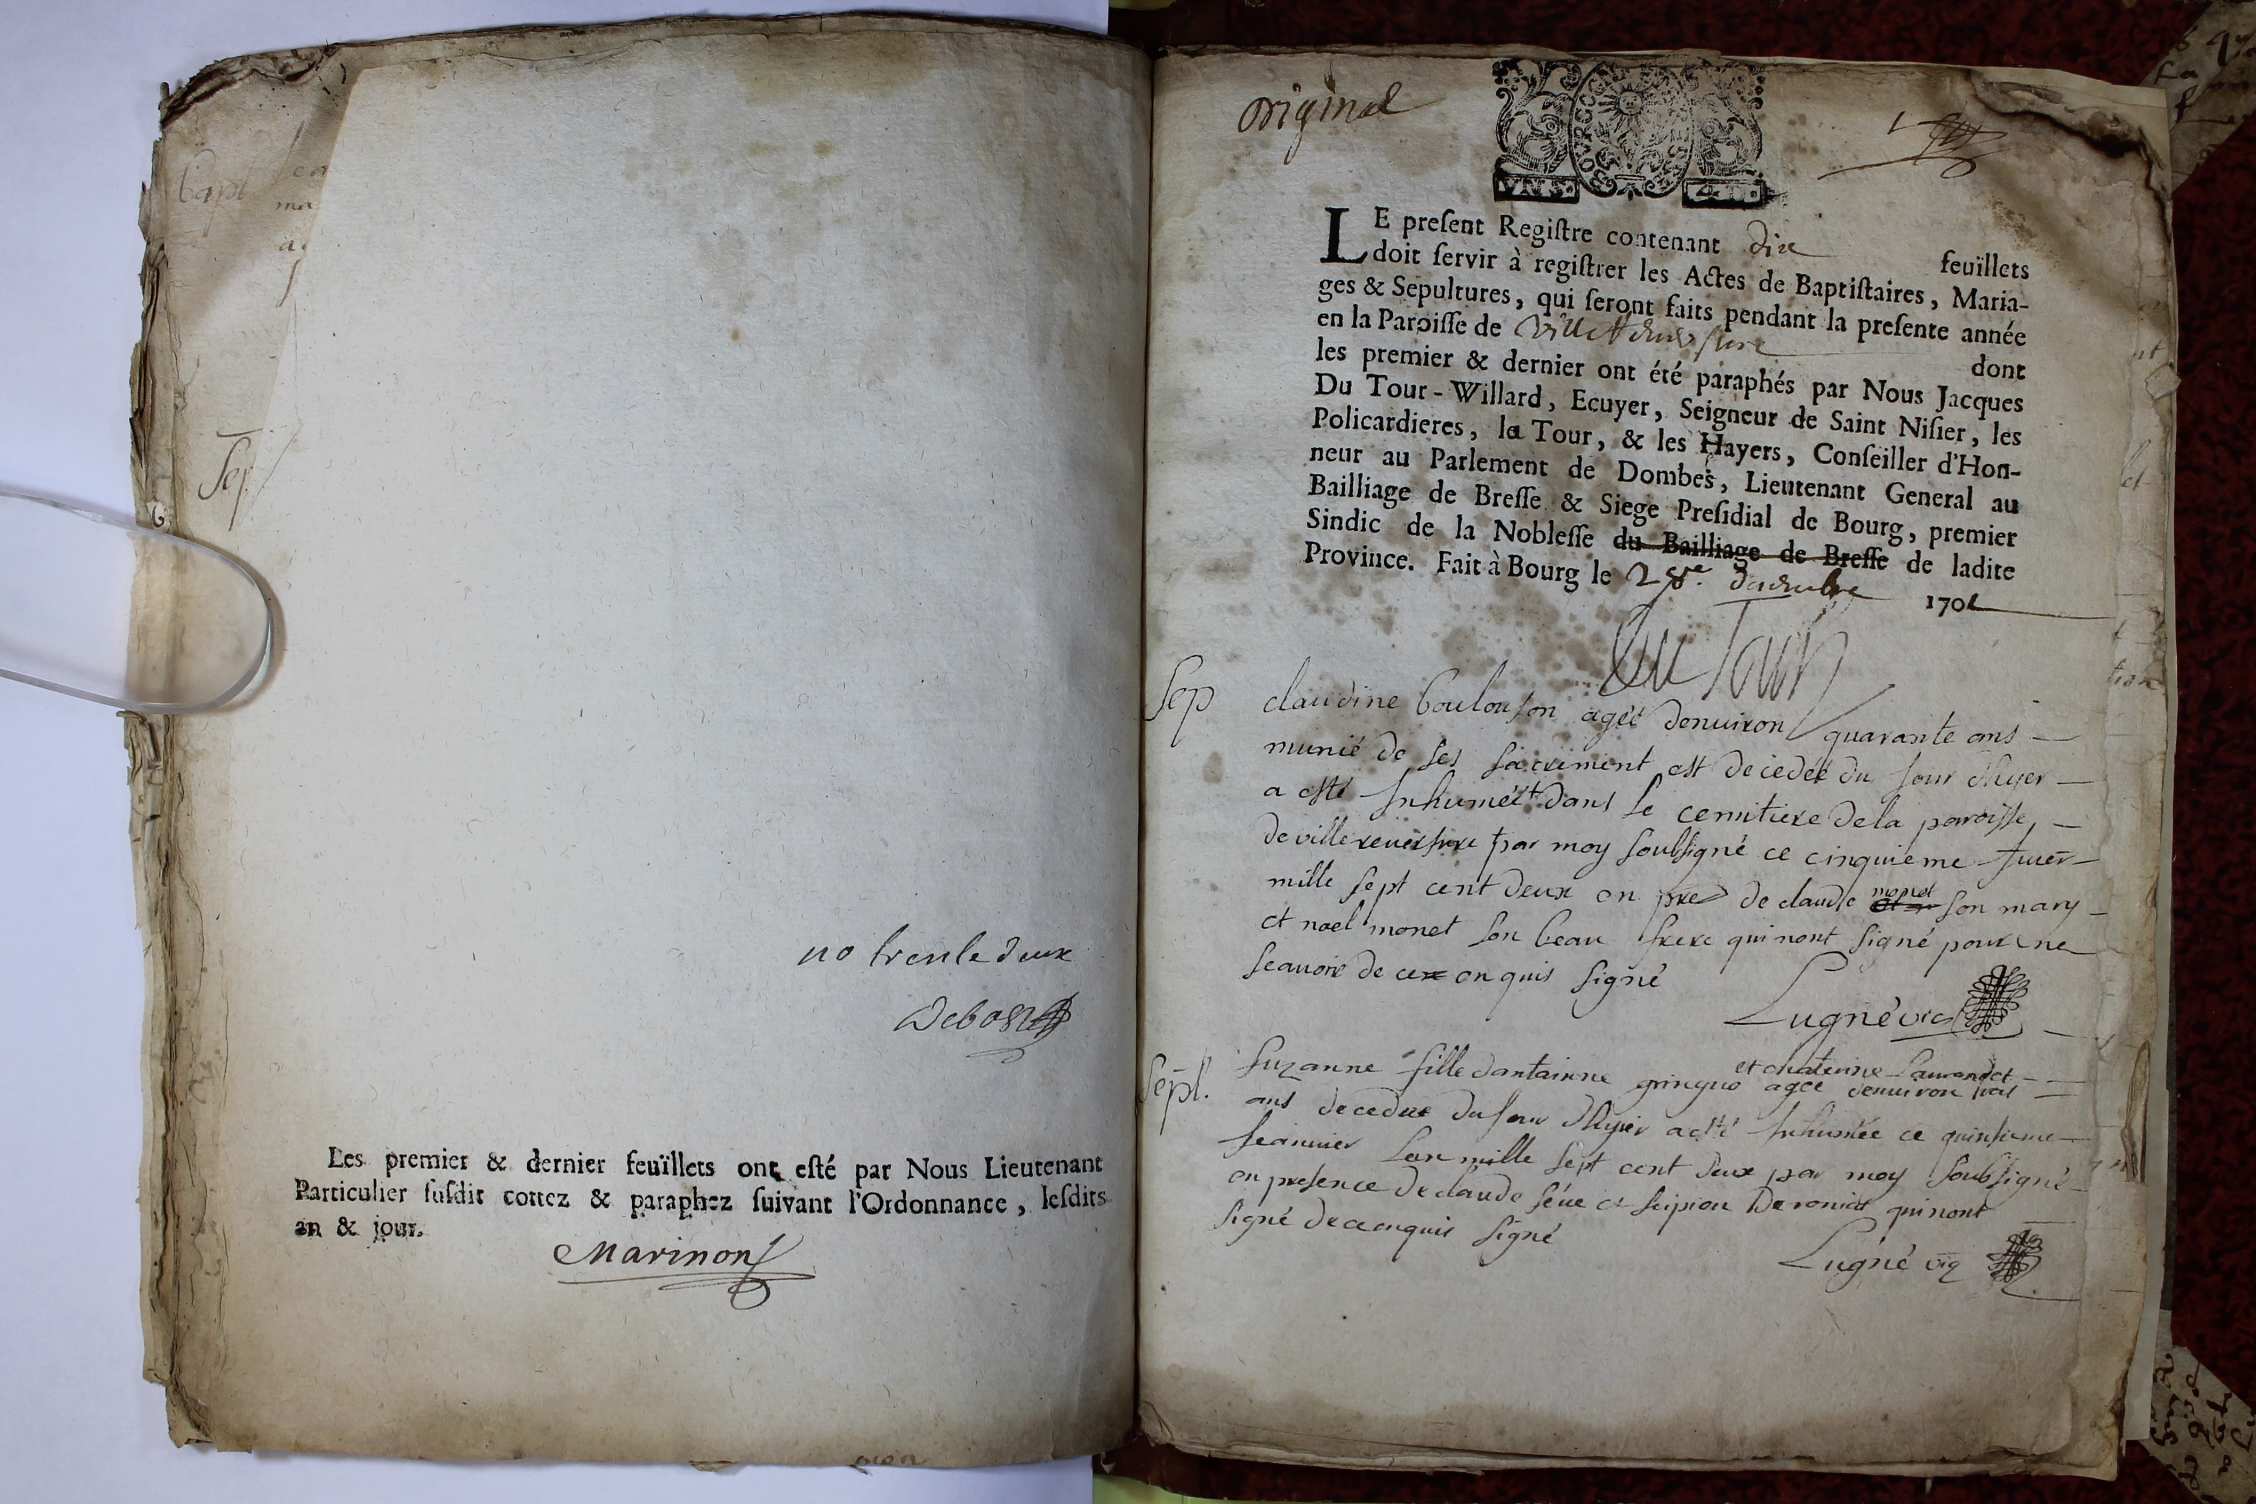 Bapt
ma
Sep
no trente deux
Debost
Les premier & dernier feuïllets ont esté par Nous Lieutenant
Particulier susdit cottez & paraphez suivant l'Ordonnance, lesdits
an & jour.
Marinon
original
BOURG
VN S.
4. D.
LE present Registre contenant dix feuïllets
doit servir à registrer les Actes de Baptistaires, Maria-
ges & Sepultures, qui seront faits pendant la presente année
en la Paroisse de Villereversure dont
les premier & dernier ont été paraphés par Nous Jacques
Du Tour-Willard, Ecuyer, Seigneur de Saint Nisier, les
Policardieres, la Tour, & les Hayers, Conseiller d'Hon-
neur au Parlement de Dombes, Lieutenant General au
Bailliage de Bresse & Siege Presidial de Bourg, premier
Sindic de la Noblesse du Bailliage de Bresse de ladite
Province. Fait à Bourg le 28re. decembre 1701
Du Tour
Sep claudine boulouson ageé denuiron quarante ans
munié de ses sacrement est decedeé du Jour dhyer
a esté Inhumeé dans le cemitiere dela paroisse
de villereuersure par moy soubsigné ce cinquieme
mille sept cent deux en pre de claude monet son mary
et noel monet son beau frere qui nont signé pour ne
scauoir de ce enquis signé
Lugné vic
Sept. suzanne fille dantainne gringuo et chaterine agee denuiron trois
ans decedee du Jour dhyer a esté Inhumée ce quinsieme
Jeanuier Lan mille sept cent deux par moy soubsigné
en presence de claude féue et scipion qui nont
signé de ce enquis signé
Lugné vic